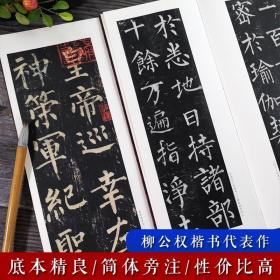 密於瑜
於悉地日持諸部
十餘万遍指淨土
皇帝巡幸左
神策軍紀聖
柳公权楷书代表作
底本精良/简体旁注/性价比高